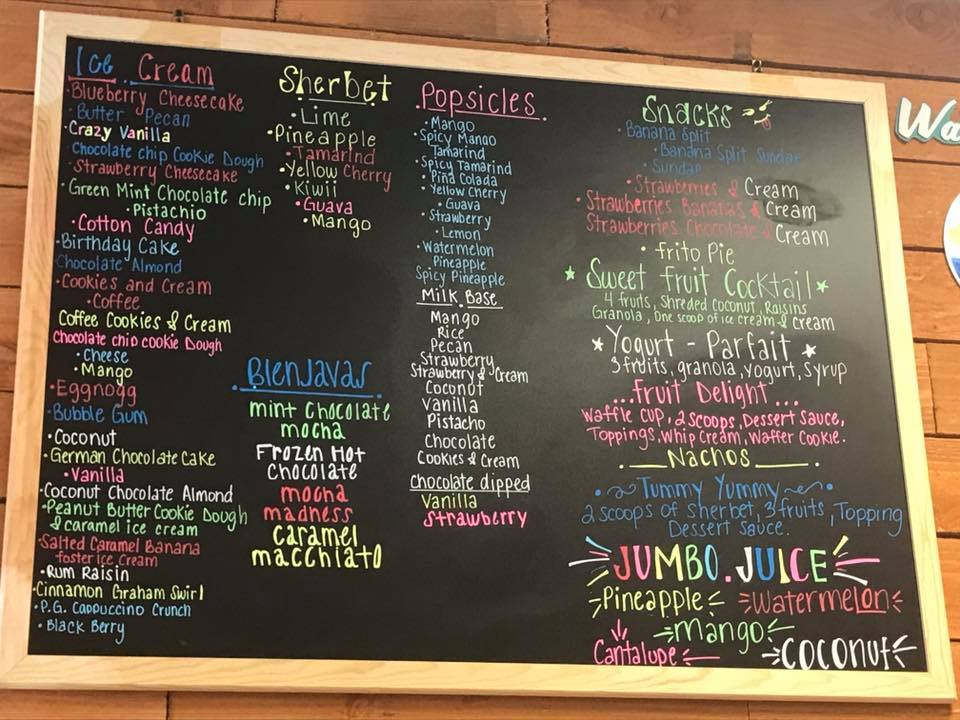 Ice Cream
• Blueberry Cheesecake
• Butter Pecan
• Crazy Vanilla
• Chocolate chip Cookie Dough
• Strawberry Cheesecake
• Green Mint Chocolate chip
• Pistachio
• Cotton Candy
• Birthday Cake
Chocolate Almond
• Cookies and Cream
• Coffee
Coffee Cookies & Cream
Chocolate chip cookie Dough
• Cheese
• Mango
• Eggnogg
• Bubble Gum
• Coconut
• German Chocolate Cake
• Vanilla
• Coconut Chocolate Almond
• Peanut Butter Cookie Dough
& caramel ice cream
• Salted Caramel Banana
foster ice Cream
• Rum Raisin
• Cinnamon Graham Swirl
• P.G. Cappuccino Crunch
• Black Berry
Sherbet
• Lime
• Pineapple
• Tamarind
• Yellow Cherry
• Kiwii
• Guava
• Mango
• Blenjavas
mint Chocolate
mocha
Frozen Hot
Chocolate
mocha
madness
caramel
macchiato
Popsicles
• Mango
• Spicy Mango
Tamarind
• Spicy Tamarind
• Piña Colada
• Yellow Cherry
• Guava
• Strawberry
• Lemon
• Watermelon
Pineapple
Spicy Pineapple
Milk Base
Mango
Rice
Pecan
Strawberry
Strawberry & Cream
Coconut
Vanilla
Pistacho
Chocolate
Cookies & Cream
chocolate dipped
Vanilla
Strawberry
Snacks
• Banana Split
• Banana Split Sundae
• Sundae
• Strawberries & Cream
• Strawberries Bananas & Cream
Strawberries Chocolate & Cream
• Frito Pie
Sweet Fruit Cocktail
4 fruits, Shreded Coconut, Raisins
Granola, One scoop of ice cream & cream
Yogurt - Parfait
3 fruits, granola, yogurt, Syrup
...Fruit Delight...
Waffle Cup, 2 scoops, Dessert Sauce,
Toppings, Whip Cream, Waffer Cookie.
Nachos
• Tummy Yummy •
2 scoops of sherbet, 3 fruits, Topping
Dessert Sauce.
JUMBO.JUICE
Pineapple
Watermelon
Mango
Cantalupe
Coconut
Wa